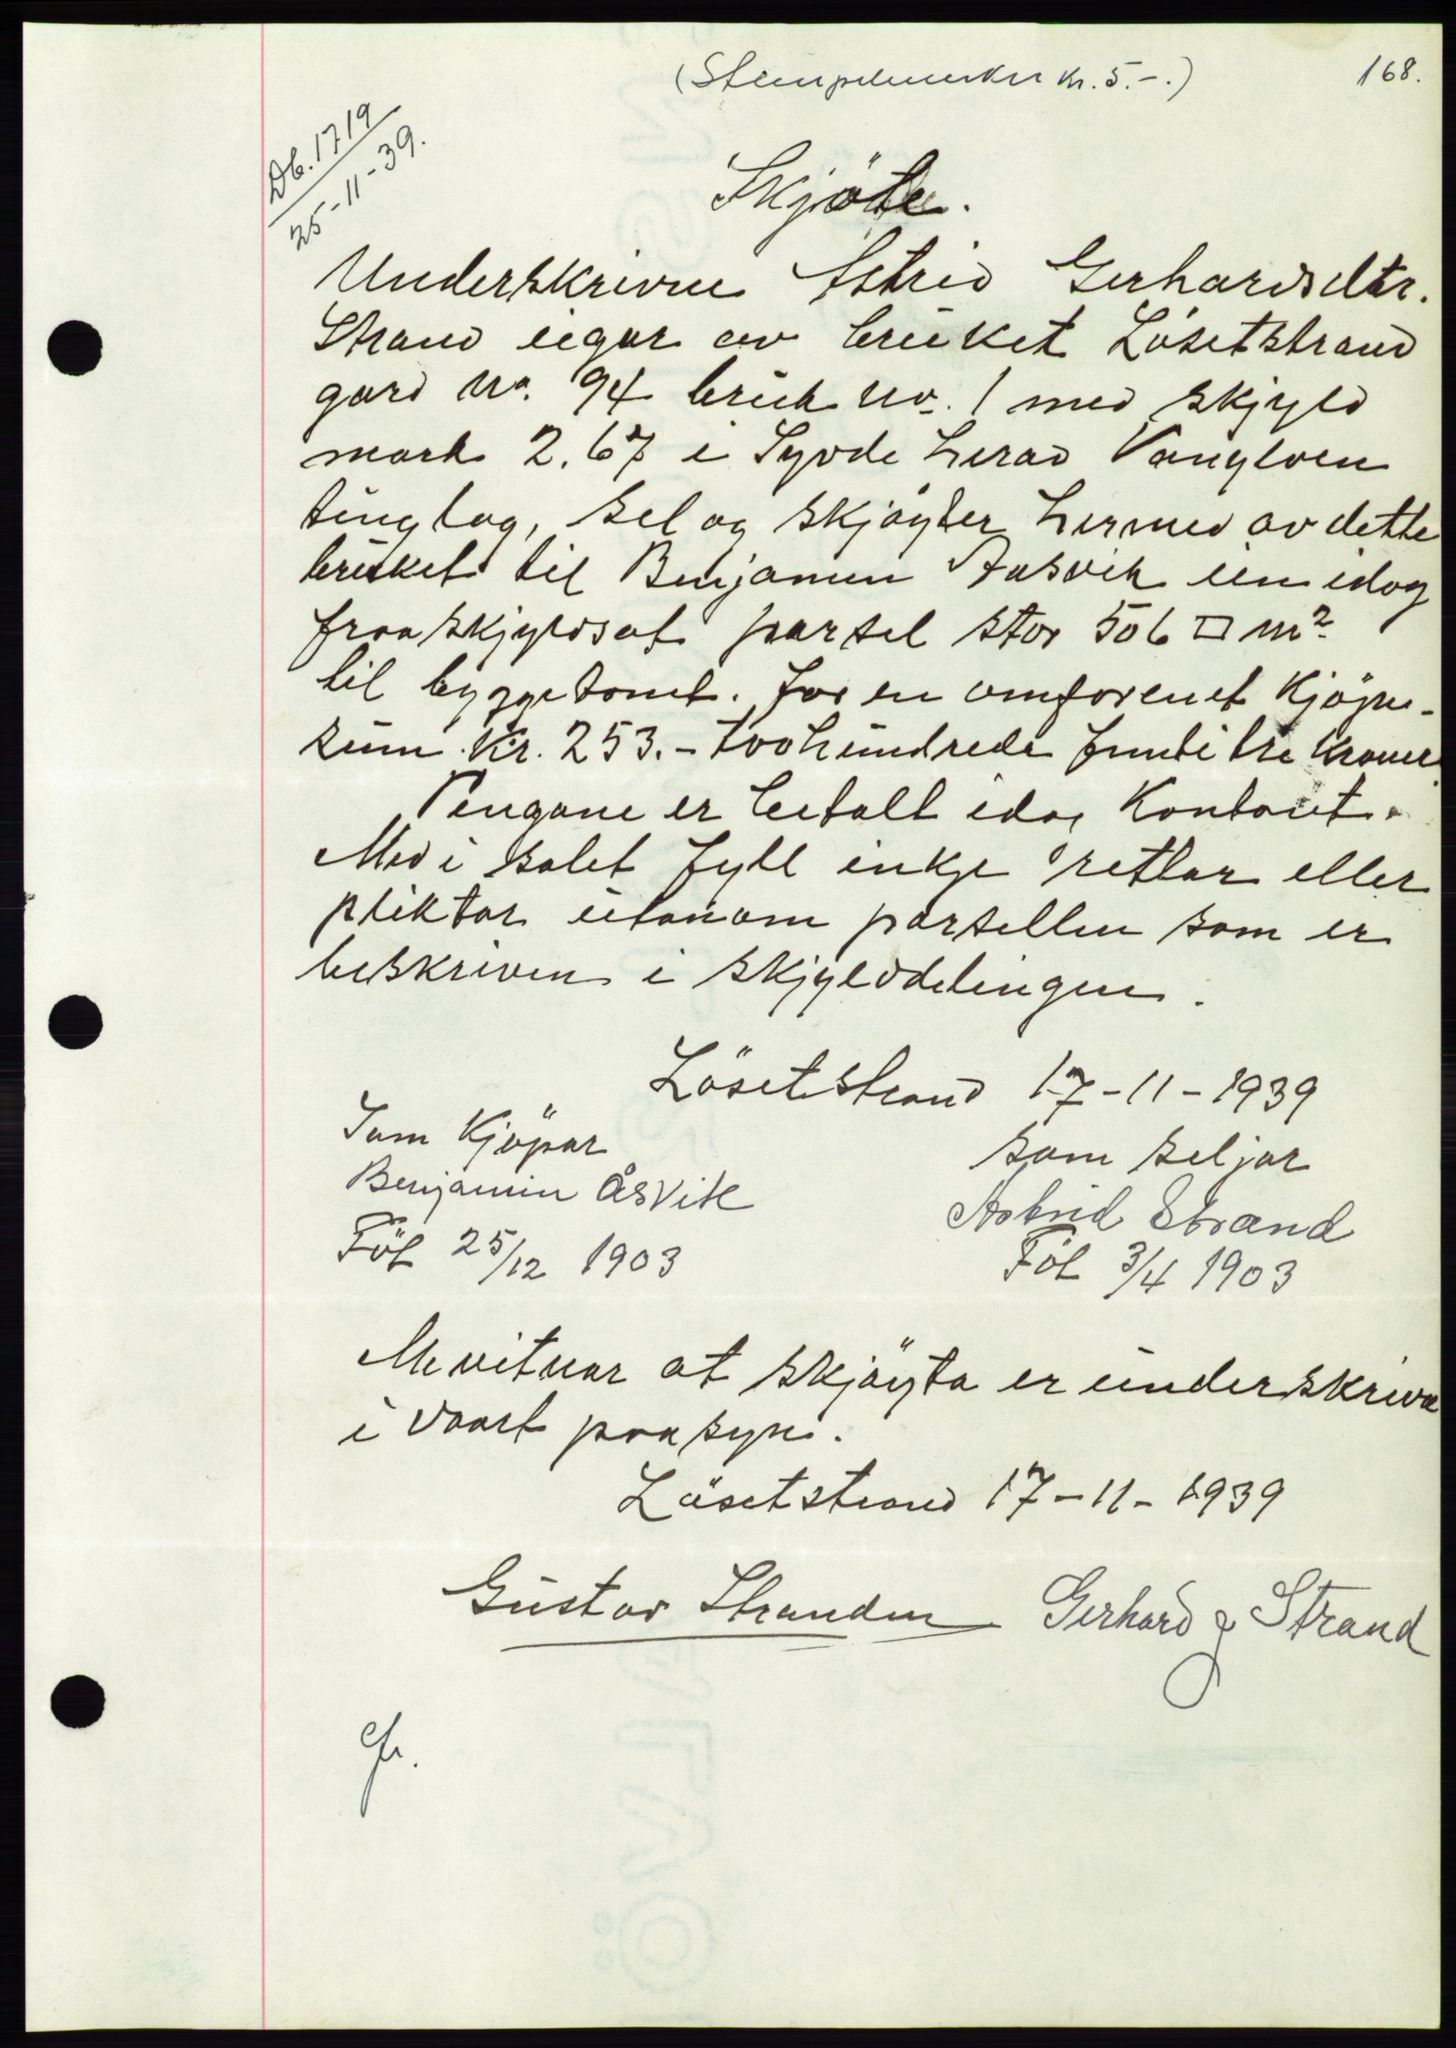 (Stempelmerker kr. 5.-.)
168.
Db. 1719
25-11-39.
Skjöte.
Underskrivne Astrid Gerhardsdtr.
Strand eigar av bruket Lösetstrand
gard no. 94 bruk no. 1 med skjyld
mark 2.67 i Syvde herad Vanylven
tinglag, sel og skjöyter hermed av dette
bruket til Benjamin Aasvik ein idag
fraaskjyldsat parsel stor 506 □ m²
til byggetomt. for en omforenet kjöpe-
sum kr. 253.- tvohundrede femti tre kroner
Pengane er betalt idag kontant.
Med i salet fyll inkje rettar eller
pliktar utanom parsellen som er
beskriven i skjylddelingen.
Lösetstrand 17-11-1939
Som kjöpar
som seljar
Benjamin Åsvik
Astrid Strand
Föt 25/12 1903
Föt 3/4 1903
Me vitnar at skjöyta er underskriva
i vaart paasyn.
Lösetstrand 17-11-1939
Gustav Stranden Gerhard J Strand